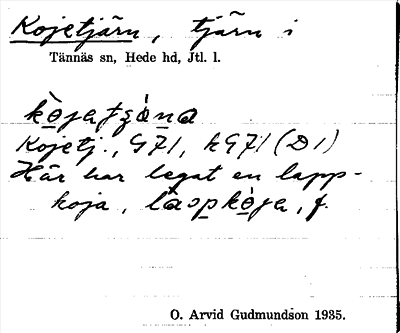 Kojetjärn, tjärn i
Tännäs sn, Hede hd, Jtl. l.
Kojetj., G71, hG71 (D1)
Här har legat en lapp-
koja,
O. Arvid Gudmundson 1935.